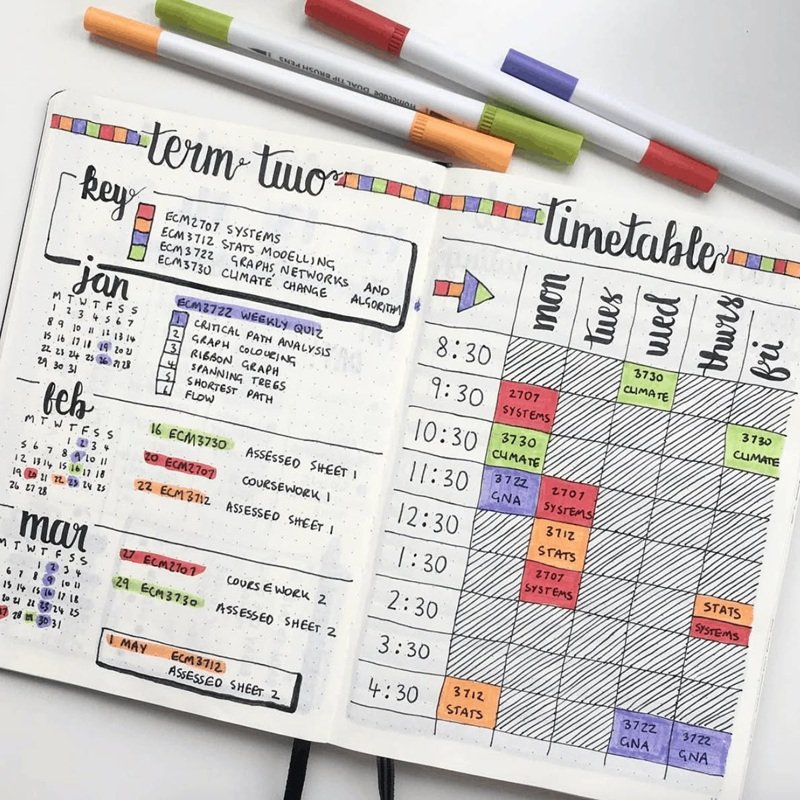 Homecube DUAL TIP BRUSH PENS
term two
key
ECM2707 SYSTEMS
ECM3712 STATS MODELLING
ECM3722 GRAPHS, NETWORKS AND ALGORITHM
ECM3730 CLIMATE CHANGE
jan
M T W T F S S
1 2 3 4 5 6 7
8 9 10 11 12 13 14
15 16 17 18 19 20 21
22 23 24 25 26 27 28
29 30 31
ECM3722 WEEKLY QUIZ
1 CRITICAL PATH ANALYSIS
2 GRAPH COLOURING
3 RIBBON GRAPH
4 SPANNING TREES
5 SHORTEST PATH
6 FLOW
feb
M T W T F S S
1 2 3 4
5 6 7 8 9 10 11
12 13 14 15 16 17 18
19 20 21 22 23 24 25
26 27 28
16 ECM3730 ASSESSED SHEET 1
20 ECM2707 COURSEWORK 1
22 ECM3712 ASSESSED SHEET 1
mar
M T W T F S S
1 2 3 4
6 7 8 9 10 11
13 14 15 16 17 18
20 21 22 23 24 25
27 28 29 30 31
27 ECM2707 COURSEWORK 2
29 ECM3730 ASSESSED SHEET 2
1 MAY ECM3712
ASSESSED SHEET 2
timetable
mon tues wed thurs fri
8:30
3730 CLIMATE
9:30
2707 SYSTEMS
3730 CLIMATE
10:30
3730 CLIMATE
11:30
3722 GNA
2707 SYSTEMS
12:30
3712 STATS
1:30
2707 SYSTEMS
2:30
STATS
SYSTEMS
3:30
4:30
3712 STATS
3722 GNA
3722 GNA